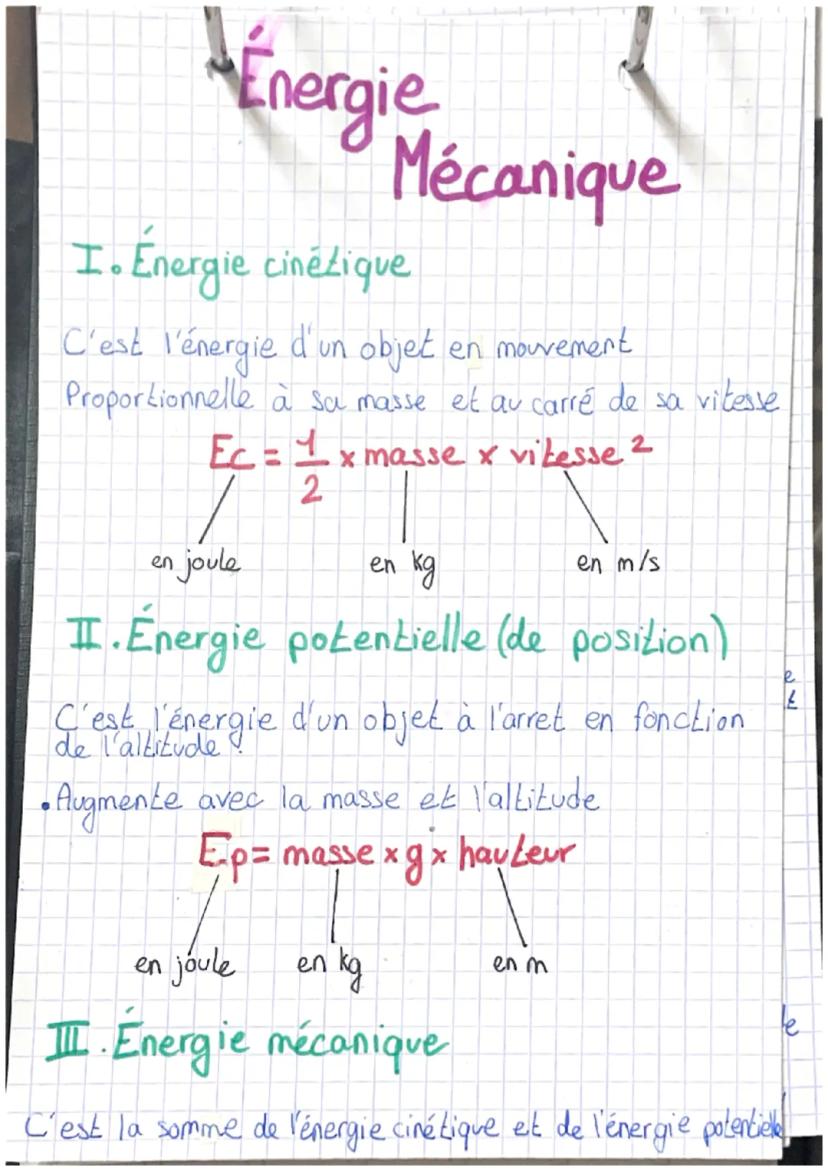 Énergie
Mécanique
I. Énergie cinétique
C'est l'énergie d'un objet en mouvement
Proportionnelle à sa masse et au carré de sa vitesse
Ec = 1/2 x masse x vitesse ²
en joule en kg en m/s
II. Énergie potentielle (de position)
C'est l'énergie d'un objet à l'arret en fonction
de l'altitude
• Augmente avec la masse et l'altitude
Ep = masse x g x hauteur
en joule en kg en m
III. Énergie mécanique
C'est la somme de l'énergie cinétique et de l'énergie potentielle